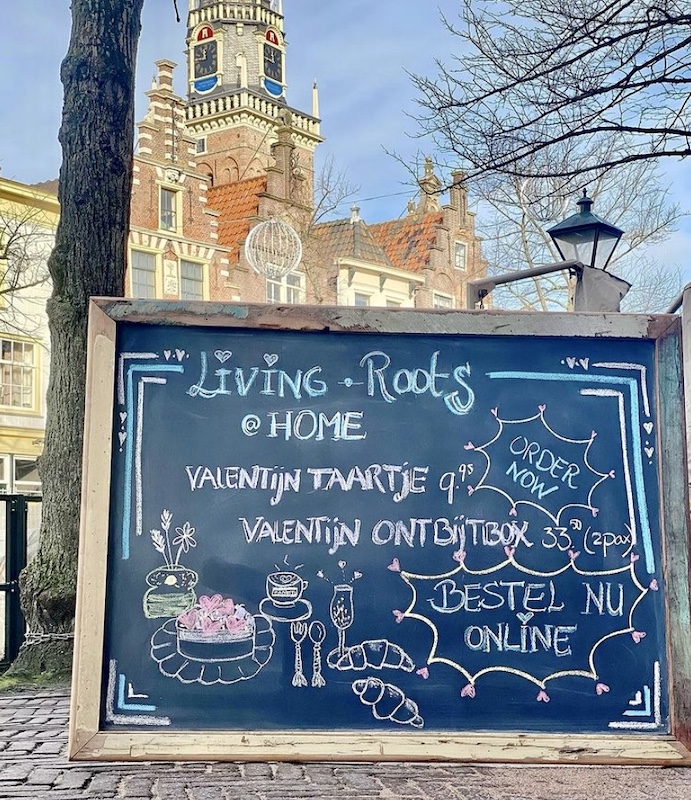 Living-Roots
@ HOME
VALENTIJN TAARTJE 9.95
ORDER
NOW
VALENTIJN ONTBIJTBOX 33.50 (2pax)
BESTEL NU
ONLINE